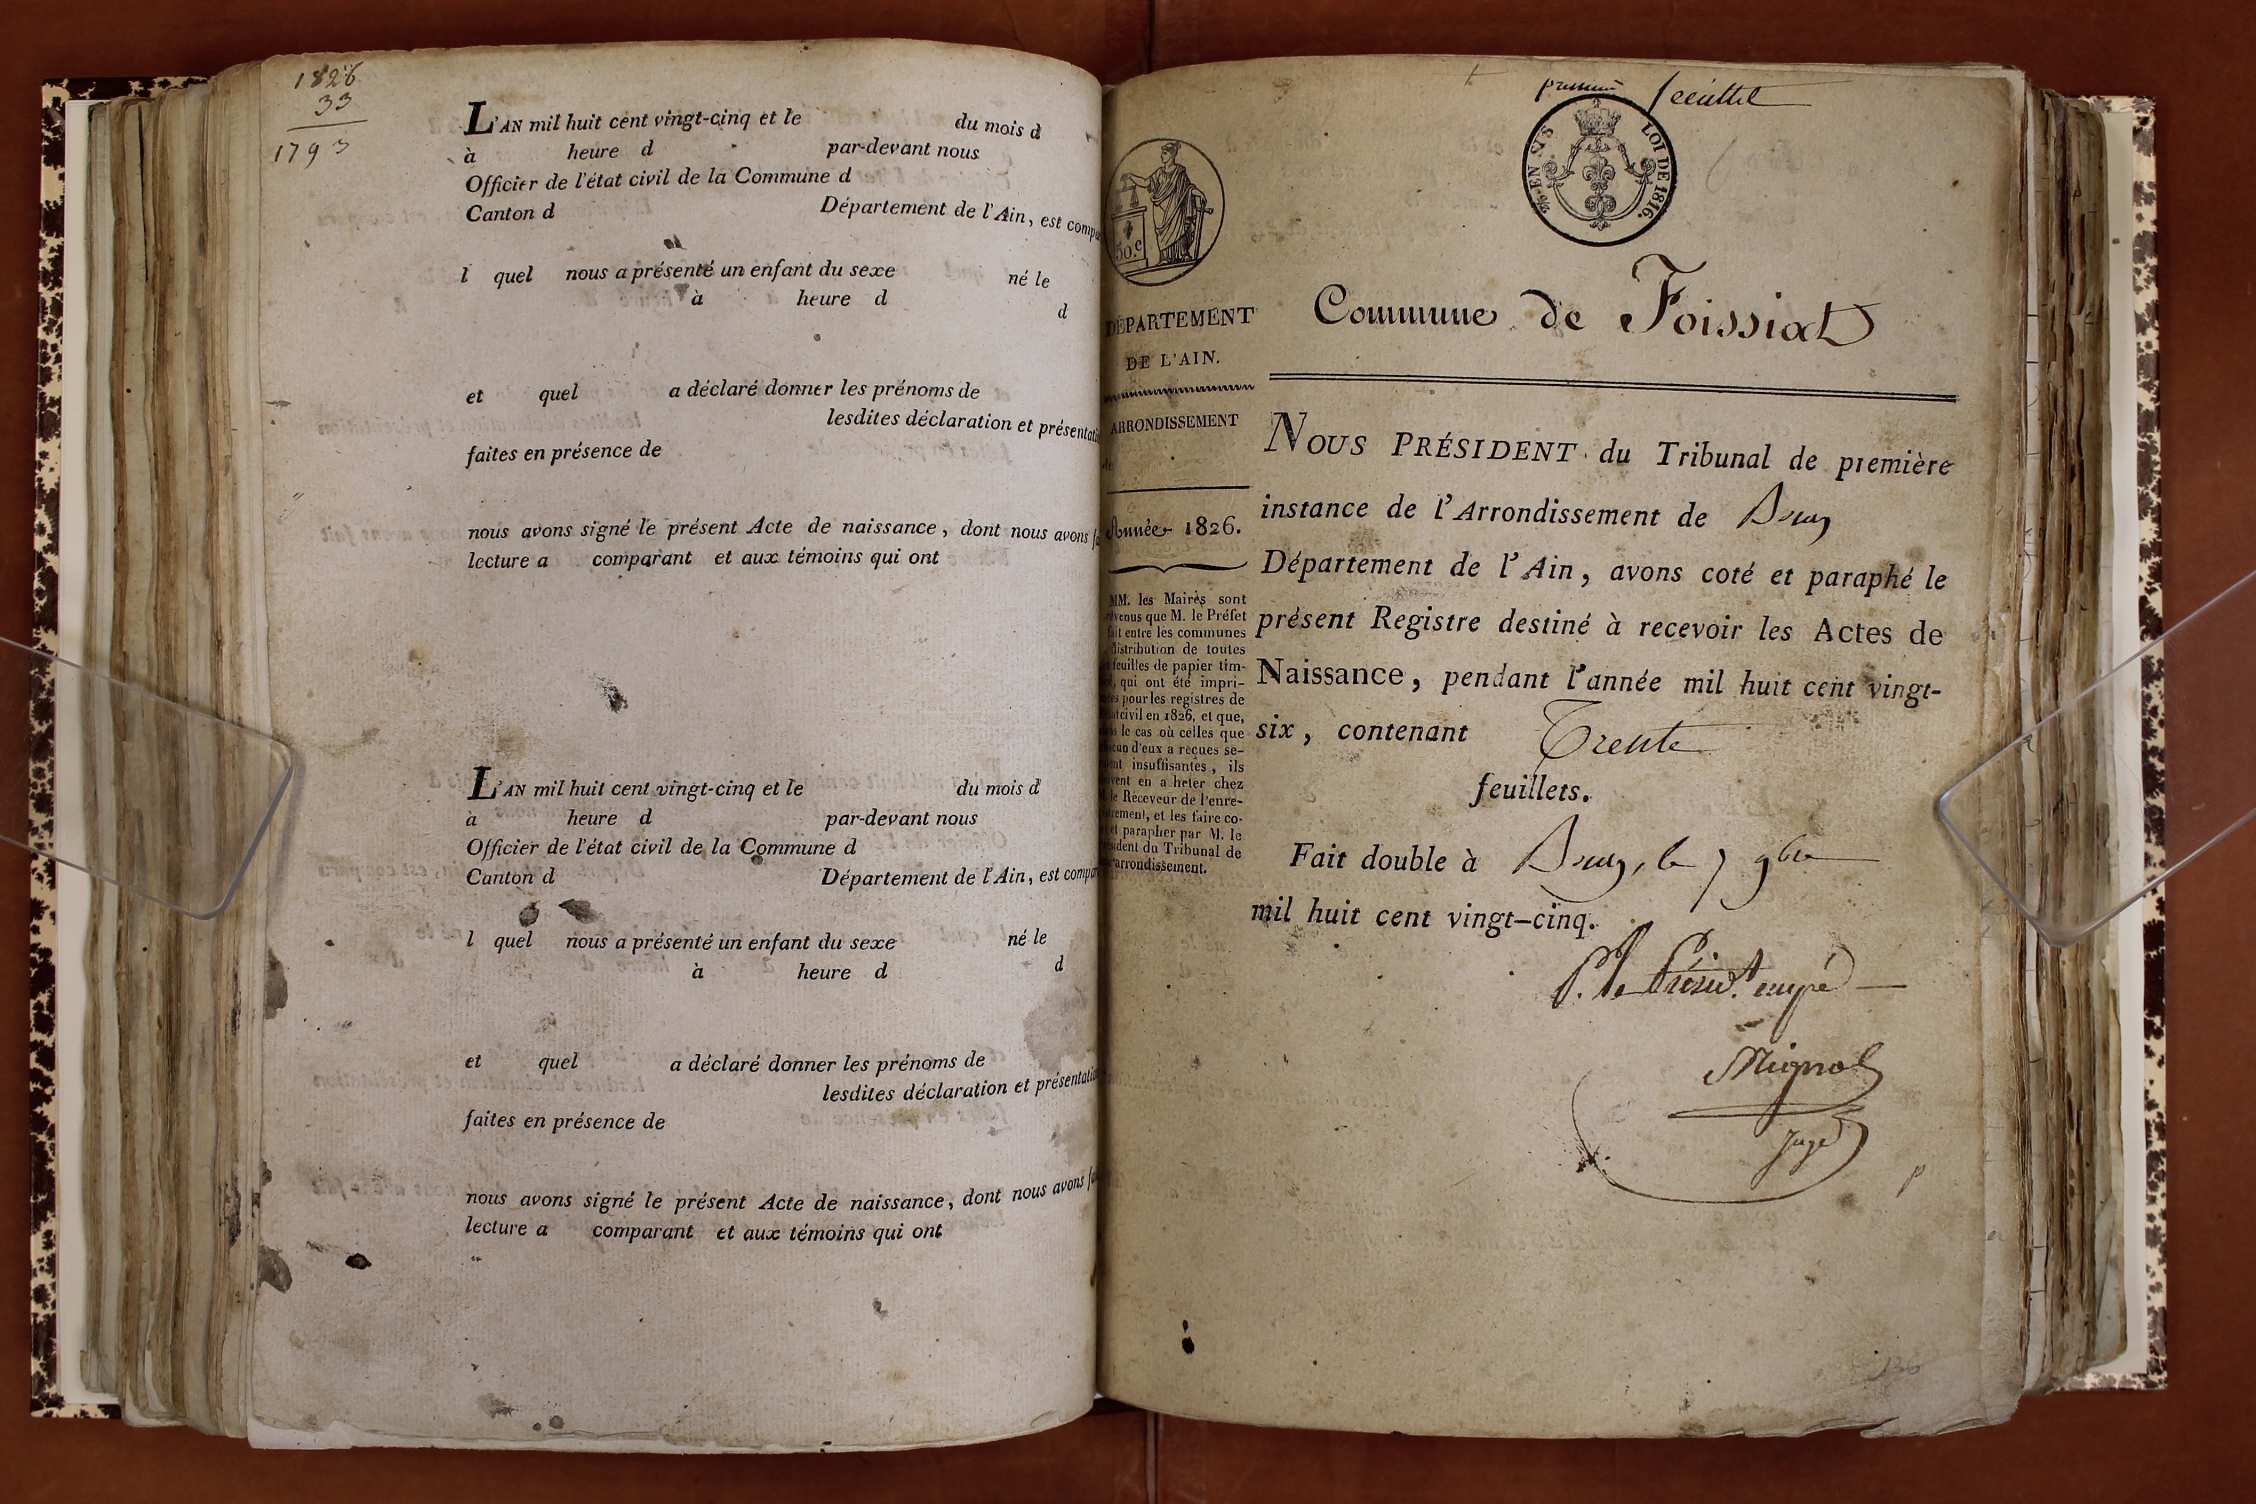 1826
33
1793
L'AN mil huit cent vingt-cinq et le du mois d
à heure d par-devant nous
Officier de l'état civil de la Commune d
Canton d Département de l'Ain, est compa
l quel nous a présenté un enfant du sexe né le
à heure d d
et quel a déclaré donner les prénoms de
lesdites déclaration et présentati
faites en présence de
nous avons signé le présent Acte de naissance, dont nous avons fa
lecture a comparant et aux témoins qui ont
L'AN mil huit cent vingt-cinq et le du mois d
à heure d par-devant nous
Officier de l'état civil de la Commune d
Canton d Département de l'Ain, est compa
l quel nous a présenté un enfant du sexe né le
à heure d d
et quel a déclaré donner les prénoms de
lesdites déclaration et présentati
faites en présence de
nous avons signé le présent Acte de naissance, dont nous avons fa
lecture a comparant et aux témoins qui ont
premier feuillet
EN SUS LOI DE 1816.
50.c
DÉPARTEMENT
DE L'AIN.
ARRONDISSEMENT
de
Année 1826.
MM. les Maires sont
venus que M. le Préfet
fait entre les communes
distribution de toutes
feuilles de papier tim-
qui ont été impri-
pour les registres de
civil en 1826, et que,
le cas où celles que
d'eux a reçues se-
insuffisantes, ils
en a heter chez
le Receveur de l'enre-
et les faire co-
et parapher par M. le
du Tribunal de
arrondissement.
Commune de Foissiat
NOUS PRÉSIDENT du Tribunal de première
instance de l'Arrondissement de Bourg
Département de l'Ain, avons coté et paraphé le
présent Registre destiné à recevoir les Actes de
Naissance, pendant l'année mil huit cent vingt-
six, contenant Trente
feuillets.
Fait double à Bourg, le 7 9bre
mil huit cent vingt-cinq.
P. le Présid.t empé
Mignot
Juge